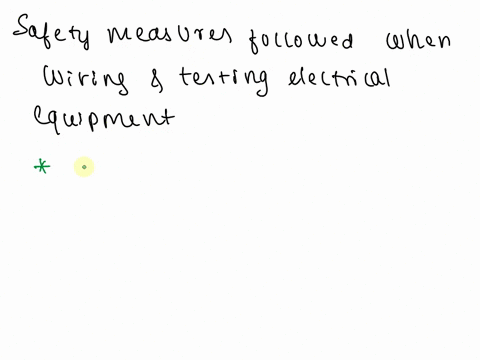 Safety measures followed when
wiring & testing electrical
equipment
*